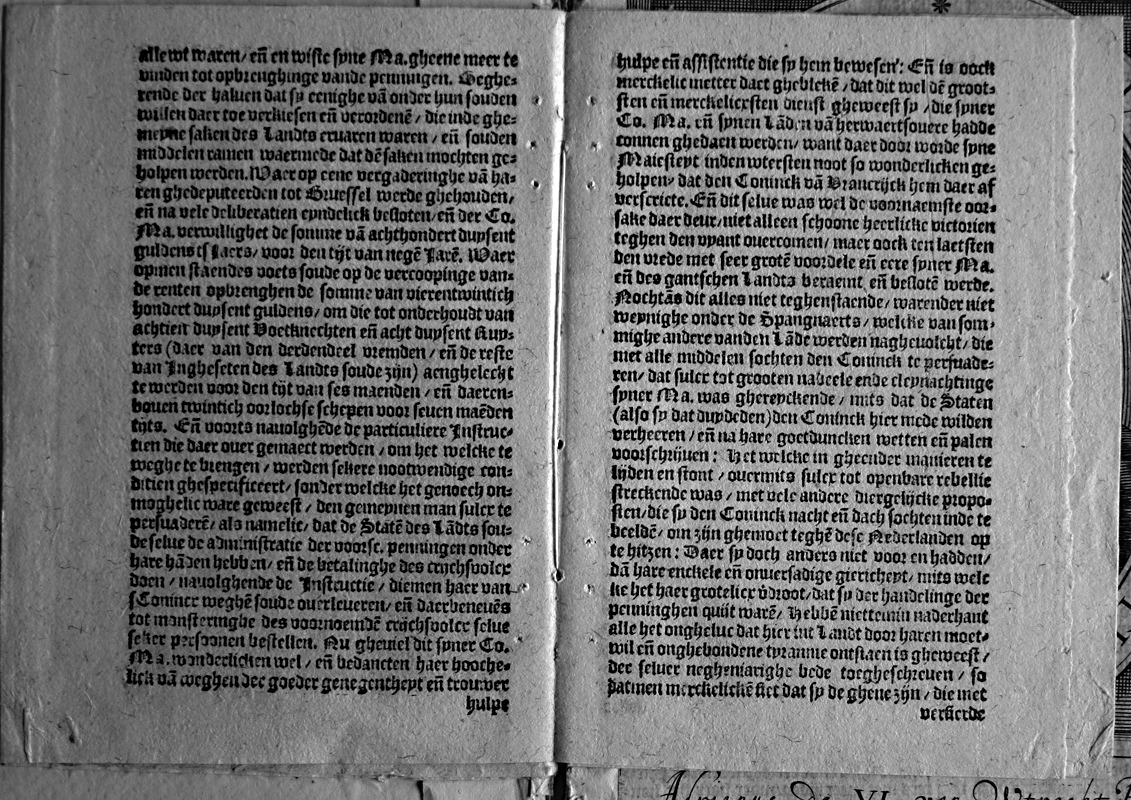 alle wt waren/ eñ en wiste syne Ma. gheene meer te
vinden tot opbrenghinge vande penningen. Beghe⸗
rende der haluen dat sy eenighe vā onder hun souden
willen daer toe verkiesen eñ verordenē / die inde ghe⸗
meyne saken des Landts eruaren waren / eñ souden
middelen ramen waermede dat dē saken mochten ge⸗
holpen werden. Waer op eene vergaderinghe vā ha⸗
ren ghedeputeerden tot Bruessel werde ghehouden/
eñ na vele deliberatien eyndelick besloten/ eñ der Co.
Ma. verwillighet de somme vā achthondert duysent
guldens tſ Jaers/ voor den tijt van negē Jarē. Waer
opmen staendes voets soude op de vercoopinge van⸗
de renten opbrenghen de somme van vierentwintich
hondert duysent guldens/ om die tot onderhoudt van
achtien duysent Voetknechten eñ acht duysent Ruy⸗
ters (daer van den derdendeel vremden / eñ de reste
van Jngheseten des Landts soude zijn) aenghelecht
te werden voor den tijt van ses maenden / eñ daeren⸗
bouen twintich oorlochse schepen voor seuen maēden
tijts. Eñ voorts nauolghēde de particuliere Jnstruc⸗
tien die daer ouer gemaect werden / om het welcke te
weghe te brengen / werden sekere nootwendige con⸗
ditien ghespecificeert/ sonder welcke het genoech on⸗
moghelic ware geweest / den gemeynen man sulcx te
persuaderē/ als namelic/ dat de Statē des Lādts sou⸗
de selue de administratie der voorsc. penningen onder
hare hāden hebben/ eñ de betalinghe des crachsvolcx
doen / nauolghende de Jnstructie / diemen haer van
ſ Conincx weghē soude ouerleueren/ eñ daerbeneuēs
tot monsteringhe des voornoemdē crachsvolcx selue
seker persoonen bestellen. Nu gheuiel dit syner Co.
Ma. wonderlicken wel / eñ bedancten haer hooche⸗
lick vā weghen der goeder genegentheyt eñ trouwer
hulpe
hulpe eñ assistentie die sy hem bewesen: Eñ is oock
merckelic metter daet ghebleke̅/ dat dit wel dē groot⸗
sten eñ merckelicxsten dienst gheweest sy / die syner
Co. Ma. eñ synen Lāden vā herwaertsouere hadde
connen ghedaen werden/ want daer door worde syne
Maiesteyt inden wtersten noot so wonderlicken ge⸗
holpen/ dat den Coninck vā Vrancrijck hem daer af
verscricte. Eñ dit selue was wel de voornaemste oor⸗
sake daer deur/ niet alleen schoone heerlicke victorien
teghen den vyant ouercomen/ maer oock ten laetsten
den vrede met seer grotē voordele eñ eere syner Ma.
eñ des gantschen Landts beraemt eñ beslotē werde.
Nochtās dit alles niet teghenstaende/ warender niet
weynighe onder de Spangnaerts/ welcke van som⸗
mighe andere vanden Lāde werden naghevolcht/ die
met alle middelen sochten den Coninck te persuade⸗
ren/ dat sulcx tot grooten nadeele ende cleynachtinge
syner Ma. was ghereyckende / mits dat de Staten
(also sy dat duydeden) den Coninck hier mede wilden
verheeren / eñ na hare goetduncken wetten eñ palen
voorschrijuen: Het welcke in gheender manieren te
lijden en stont / ouermits sulcx tot openbare rebellie
streckende was / met vele andere diergelijcke propo⸗
sten/ die sy den Coninck nacht eñ dach sochten inde te
beeldē/ om zijn ghemoet teghē dese Nederlanden op
te hitzen: Daer sy doch anders niet voor en hadden/
dā hare enckele eñ onuersadige giericheyt/ mits welc
ke het haer grotelicx v̄droot/ dat sy der handelinge der
penninghen quijt warē/ Hebbē niettemin naderhant
alle het ongheluc dat hier int Landt door haren moet⸗
wil eñ onghebondene tyrannie ontstaen is gheweest/
der seluer neghenjarighe bede toegheschreuen / so
datmen merckelickē siet dat sy de ghene zijn / die met
verkierde